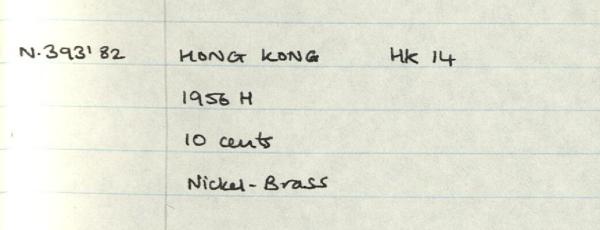 N.393'82 HONG KONG HK 14
1956 H
10 cents
Nickel-Brass